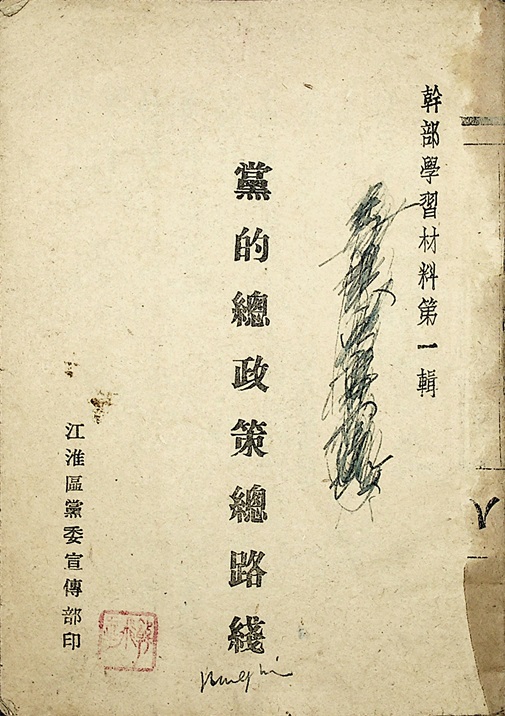 幹部學習材料第一輯
黨的總政策總路綫
江淮區黨委宣傳部印